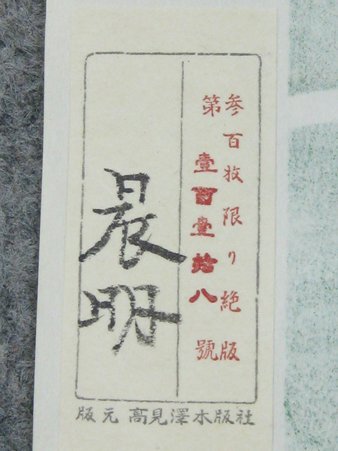 参百枚限り絶版
第壹百壹拾八號
晨明
版元 高見澤木版社